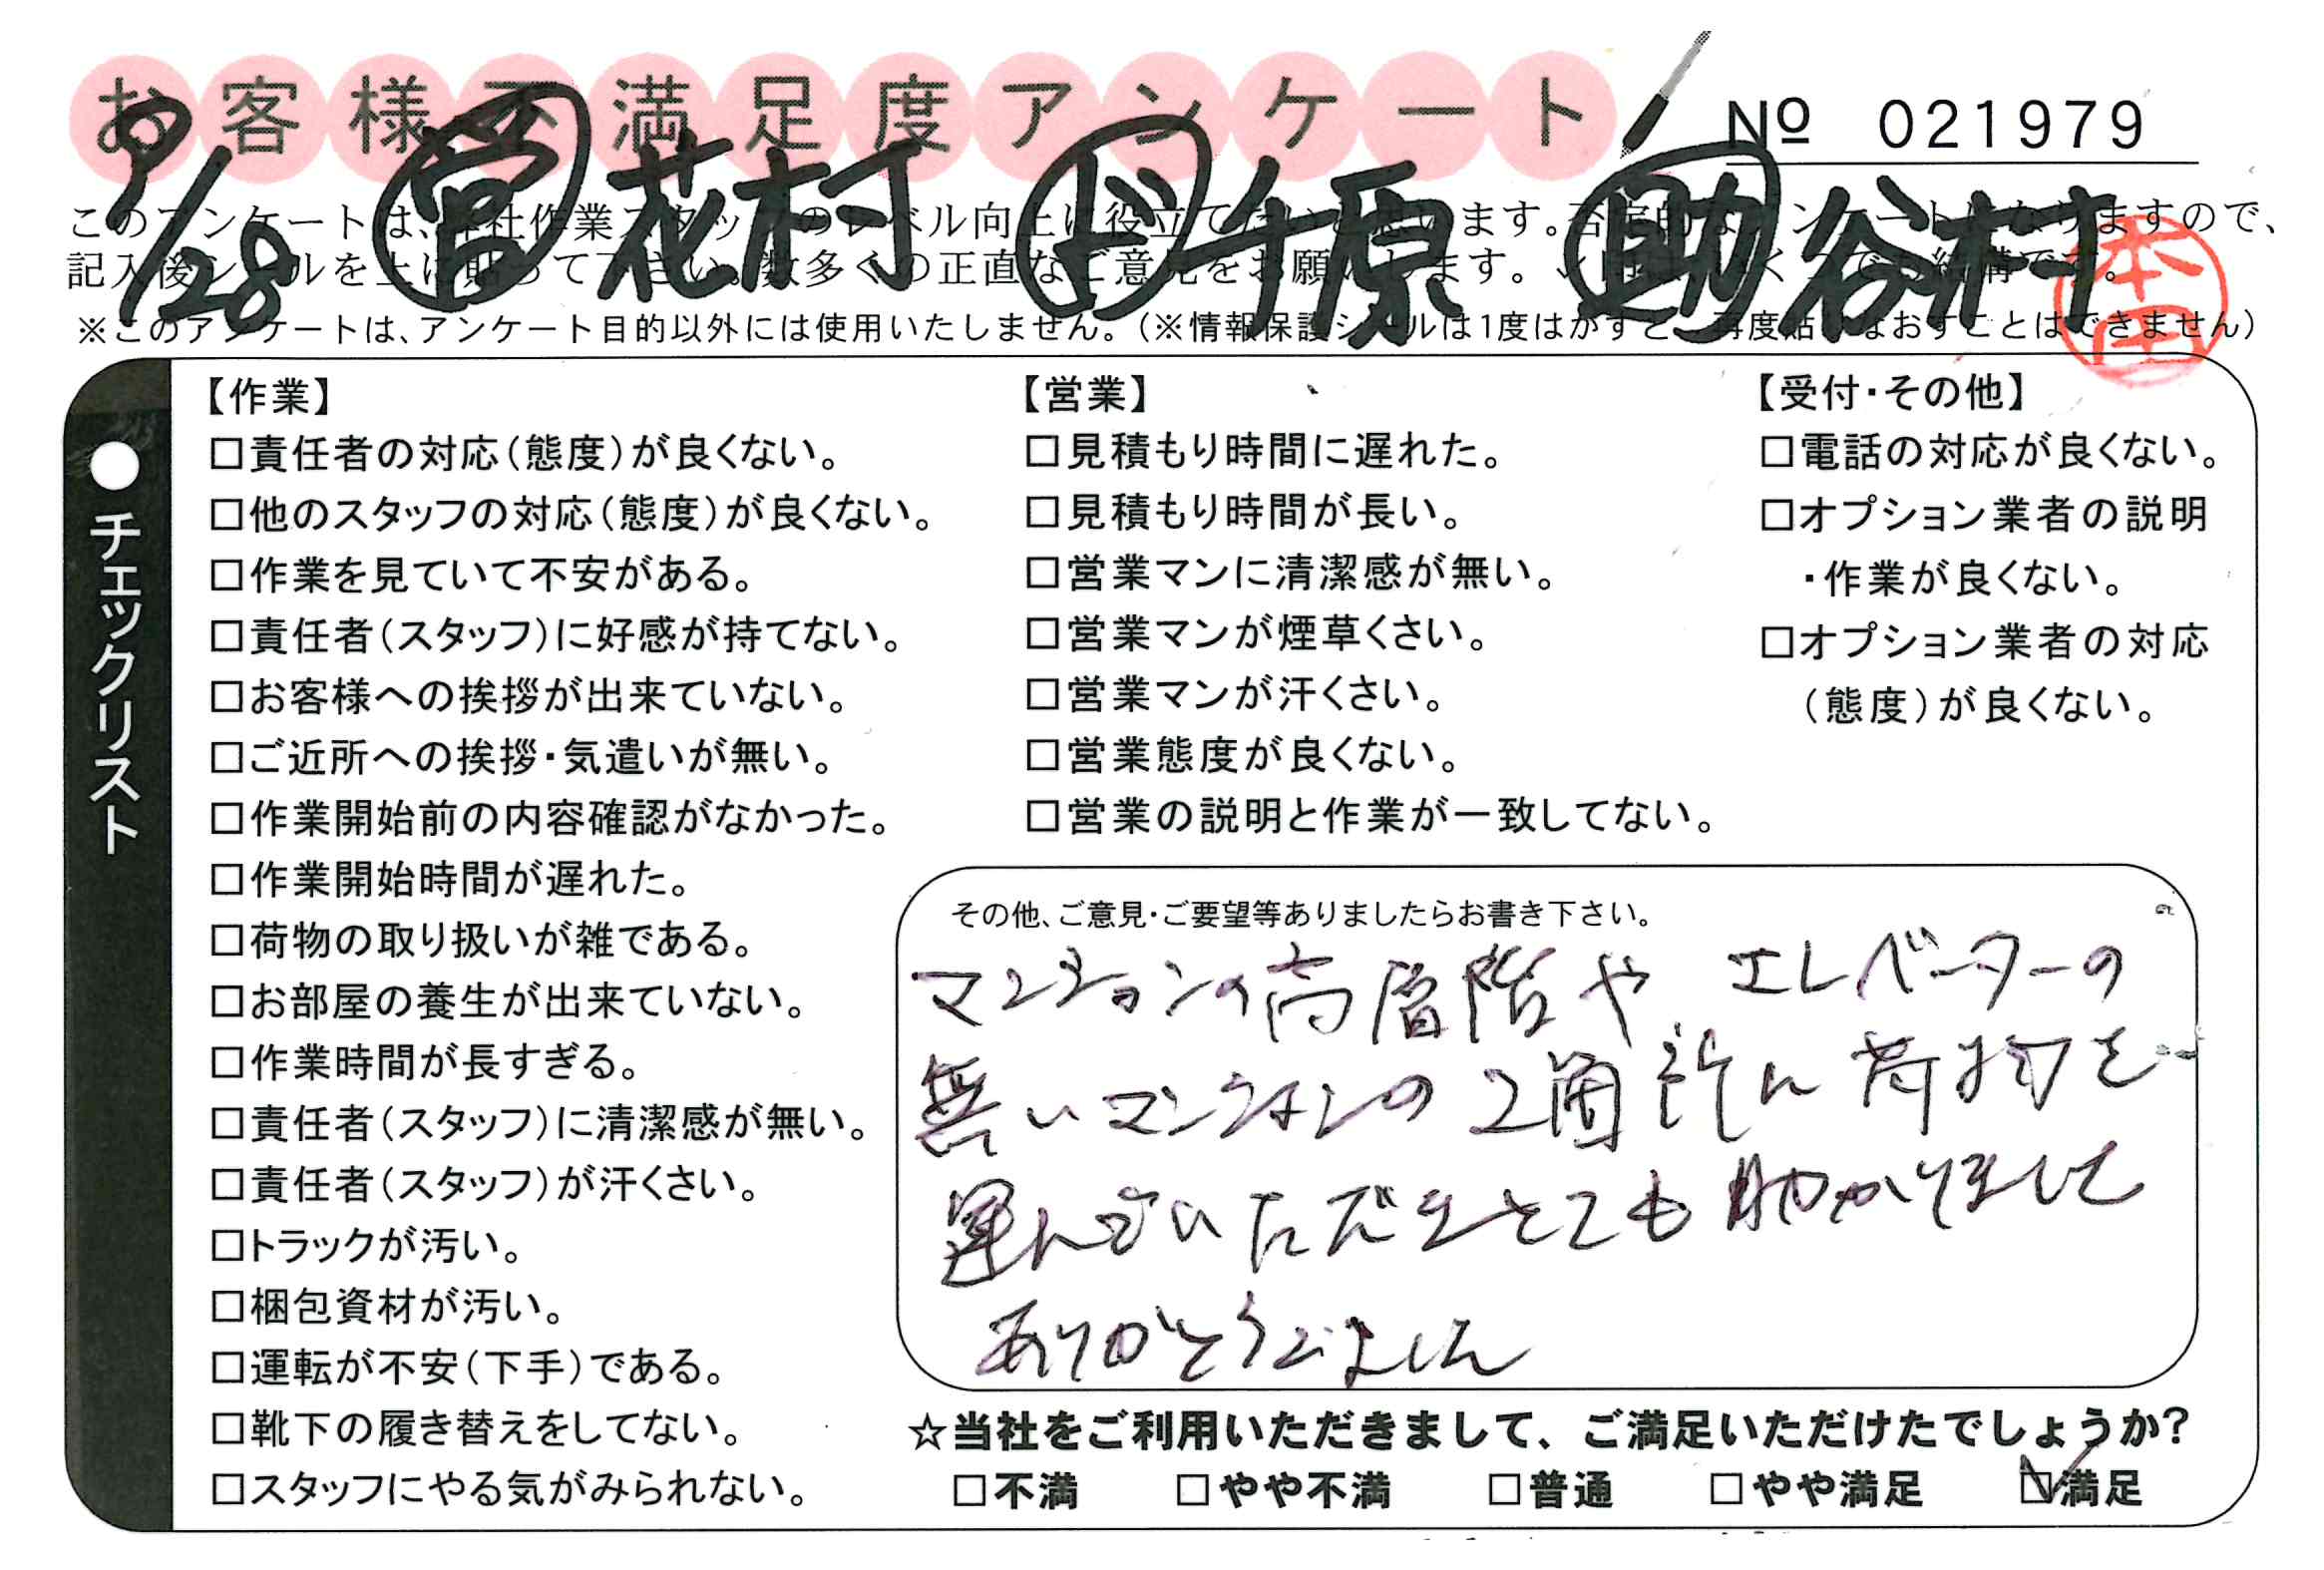 お客様不満足度アンケート
№ 021979
/28 営 花村 ド 千原 助 谷村
このアンケートは、弊社作業スタッフのレベル向上に役立てたいと思います。否定的なアンケートになりますので、
記入後シールを上に貼って下さい。数多くの正直なご意見をお願いします。✓印はいくつでも結構です。
※このアンケートは、アンケート目的以外には使用いたしません。(※情報保護シールは1度はがすと、再度貼りなおすことはできません)
本田
●チェックリスト
【作業】
□責任者の対応(態度)が良くない。
□他のスタッフの対応(態度)が良くない。
□作業を見ていて不安がある。
□責任者(スタッフ)に好感が持てない。
□お客様への挨拶が出来ていない。
□ご近所への挨拶・気遣いが無い。
□作業開始前の内容確認がなかった。
□作業開始時間が遅れた。
□荷物の取り扱いが雑である。
□お部屋の養生が出来ていない。
□作業時間が長すぎる。
□責任者(スタッフ)に清潔感が無い。
□責任者(スタッフ)が汗くさい。
□トラックが汚い。
□梱包資材が汚い。
□運転が不安(下手)である。
□靴下の履き替えをしてない。
□スタッフにやる気がみられない。
【営業】
□見積もり時間に遅れた。
□見積もり時間が長い。
□営業マンに清潔感が無い。
□営業マンが煙草くさい。
□営業マンが汗くさい。
□営業態度が良くない。
□営業の説明と作業が一致してない。
【受付・その他】
□電話の対応が良くない。
□オプション業者の説明
・作業が良くない。
□オプション業者の対応
(態度)が良くない。
その他、ご意見・ご要望等ありましたらお書き下さい。
マンションの高層階や エレベーターの
無いマンションの2箇所に荷物を
運んでいただきとても助かりまして
ありがとうございました
☆当社をご利用いただきまして、ご満足いただけたでしょうか?
□不満 □やや不満 □普通 □やや満足 ☑満足